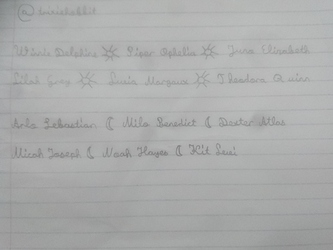 Winnie Delphine ☼ Piper Ophelia ☼ Juna Elizabeth
Lilah Gray ☼ Lucia Margaux ☼ Theodora Quinn
Arlo Sebastian ☾ Milo Benedict ☾ Dexter Atlas
Micah Joseph ☾ Noah Hayes ☾ Kit Levi